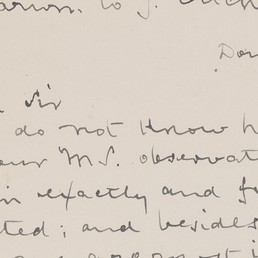 to J.
Do
Sir
do not know h
our MS. observat
in exactly and f
ted; and besides